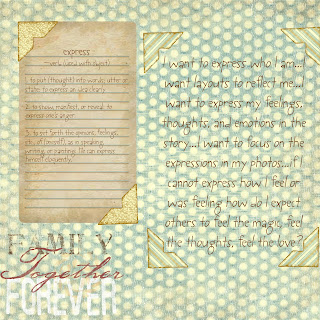 express
—verb (used with object)
1. to put (thought) into words; utter or
state: to express an idea clearly.
2. to show, manifest, or reveal: to
express one's anger.
3. to set forth the opinions, feelings,
etc. of (oneself), as in speaking,
writing, or painting: He can express
himself eloquently.
I want to express who I am...I
want layouts to reflect me...I
want to express my feelings,
thoughts, and emotions in the
story...I want to focus on the
expressions in my photos...If I
cannot express how I feel or
was feeling how do I expect
others to feel the magic, feel
the thoughts, feel the love?
FAMILY
Together
FOREVER